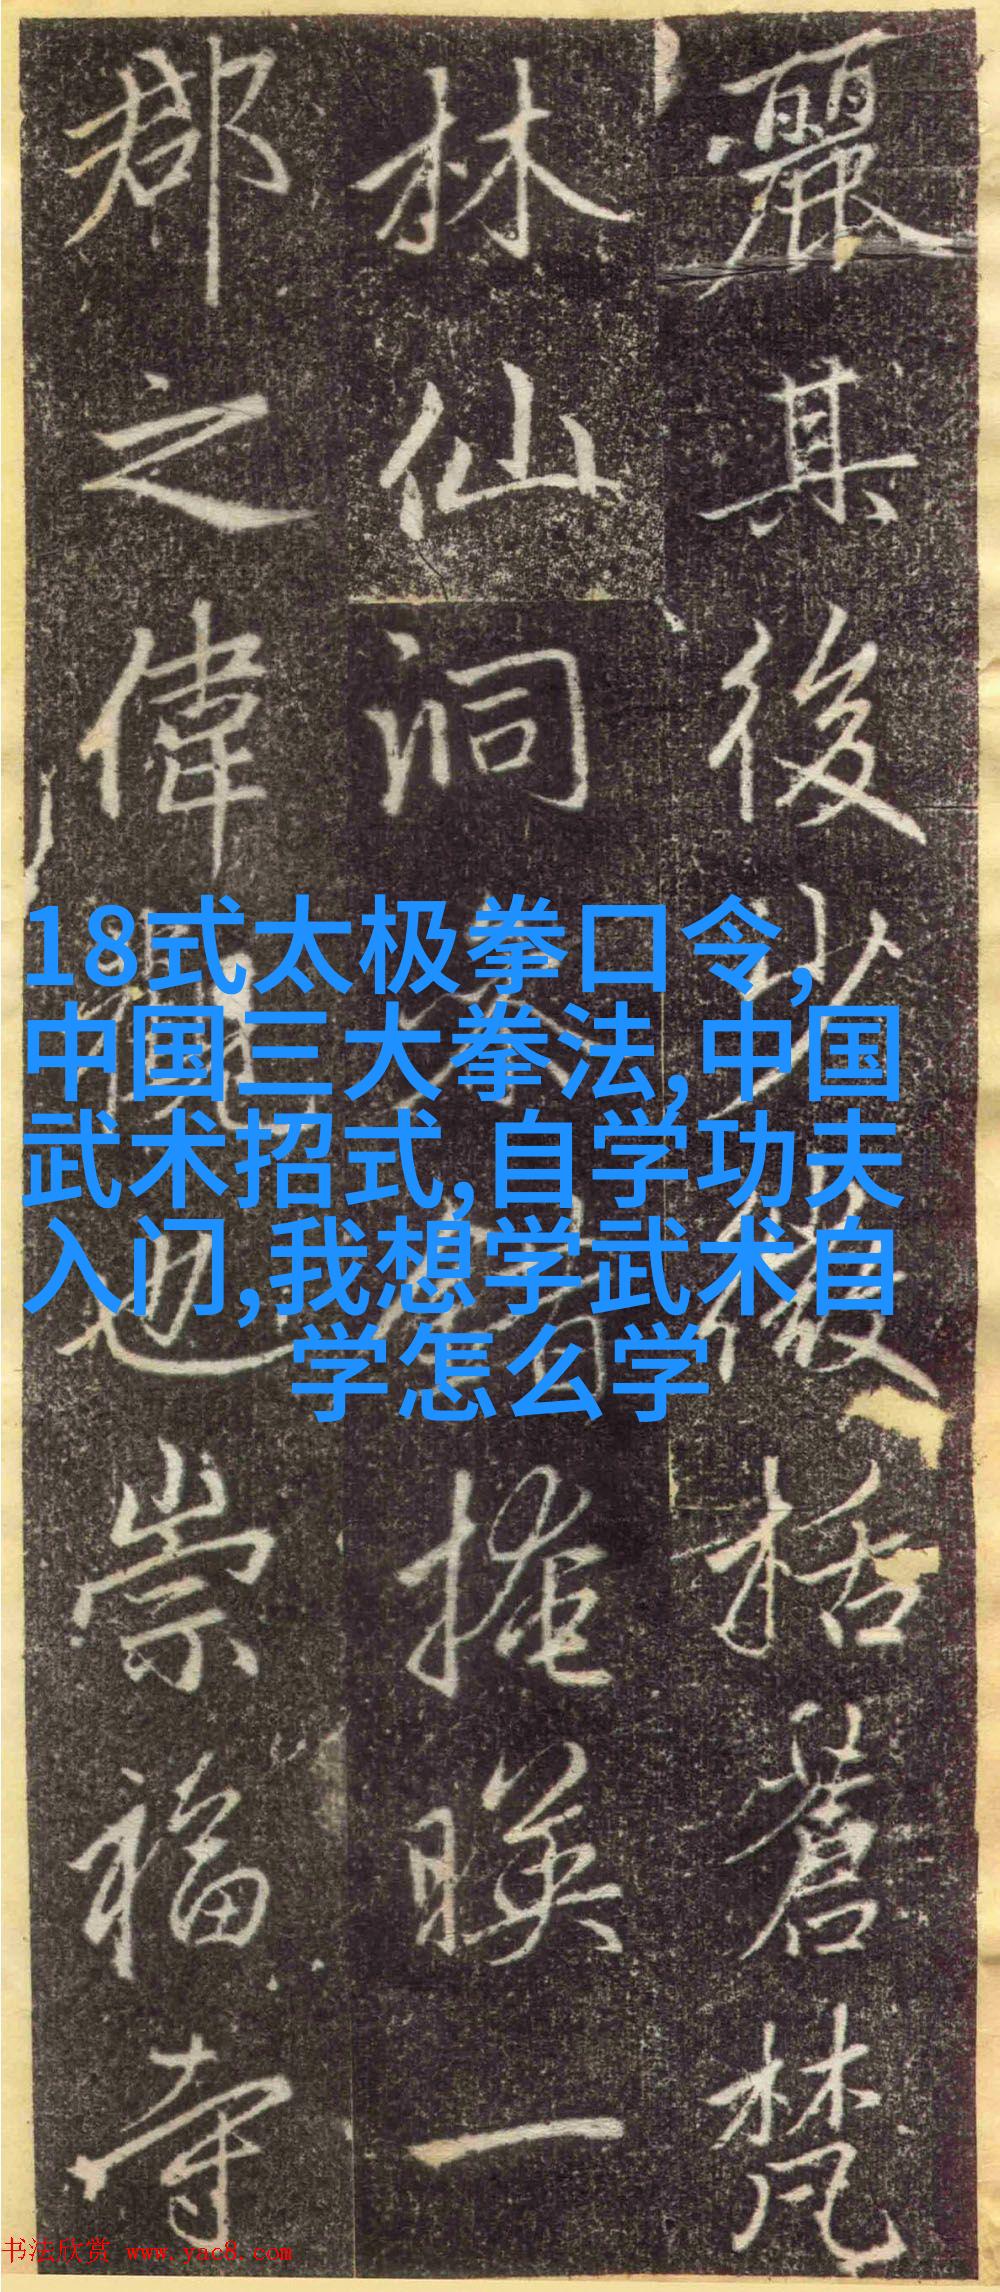 麗其後妙
微括蒼梵
林仙洞
掩暎一
郡之偉觀也崇福寺
18式太极拳口令,
中国三大拳法,中国
武术招式,自学功夫
入门,我想学武术自
学怎么学
书法欣赏 www.yac8.com